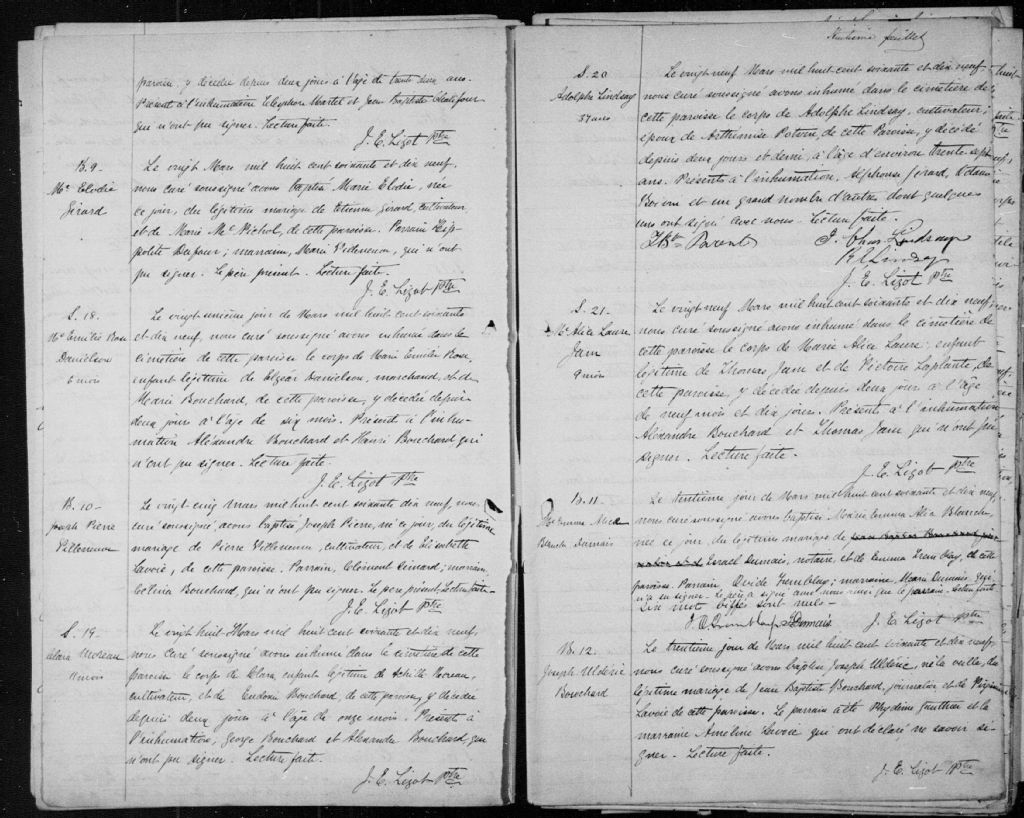 paroisse, y décédée depuis deux jours à l'âge de trente deux ans.
Présent à l'inhumation Télesphore Martel et Jean Baptiste
qui n'ont pu signer. Lecture faite.
J. E. Lizot Ptre
B. 9-
Me Elodie
Girard
Le vingt Mars mil huit cent soixante et dix neuf,
nous curé soussigné avons baptisé Marie Elodie, née
ce jour, du légitime mariage de Etienne Girard, cultivateur
et de Marie Mc Nichol, de cette paroisse. Parrain Hyp-
polite Dufour; marraine, Marie Villeneuve, qui n'ont
pu signer. Le père présent. Lecture faite.
J. E. Lizot Ptre
S. 18.
Me Emilie Rose
Danielson
6 mois
Le vingt unième jour de Mars mil huit cent soixante
et dix neuf, nous curé soussigné avons inhumé dans le
cimetière de cette paroisse le corps de Marie Emilie Rose,
enfant légitime de Elzéar Danielson, marchand, et de
Marie Bouchard, de cette paroisse, y décédée depuis
deux jours à l'âge de six mois. Présent à l'inhu-
mation Aléxandre Bouchard et Henri Bouchard qui
n'ont pu signer. Lecture faite.
J. E. Lizot Ptre
B. 10-
Joseph Pierre
Villeneuve
Le vingt cinq Mars mil huit cent soixante dix neuf, nous
curé soussigné avons baptisé Joseph Pierre, né ce jour, du légitime
mariage de Pierre Villeneuve, cultivateur, et de Elisabette
Lavoie, de cette paroisse. Parrain, Clément Simard; marraine,
Célina Bouchard, qui n'ont pu signer. Le père présent, Lecture faite-
J. E. Lizot Ptre
S. 19-
Clara Moreau
11 mois
Le vingt huit Mars mil huit cent soixante et dix neuf,
nous curé soussigné avons inhumé dans le cimetière de cette
paroisse le corps de Clara, enfant légitime de Achille Moreau,
cultivateur, et de Eudoxie Bouchard, de cette paroisse, y décédée
depuis deux jours à l'âge de onze mois. Présent à
l'inhumation, George Bouchard et Alexandre Bouchard, qui
n'ont pu signer. Lecture faite.
J. E. Lizot Ptre
Huitième feuillet
S. 20
Adolphe Lindsay
37 ans
Le vingt neuf Mars mil huit cent soixante et dix neuf
nous curé soussigné avons inhumé dans le cimetière de
cette paroisse le corps de Adolphe Lindsay, cultivateur,
époux de Arthémise Potvin, de cette Paroisse, y décédé
depuis deux jours et demi, à l'âge d'environ trente sept
ans. Présents à l'inhumation, Alphonse Gérard, Adam
Boivin et un grand nombre d'autres dont quelques
uns ont signé avec nous. Lecture faite.
J. Bte Parent J. Chas Lindsay
R. C. Lindsay
J. E. Lizot Ptre
S. 21-
Me Alice Laure
Jam
9 mois
Le vingt neuf Mars mil huit cent soixante et dix neuf,
nous curé soussigné avons inhumé dans le cimetière de
cette paroisse le corps de Marie Alice Laure, enfant
légitime de Thomas Jam et de Victoire Laplante, de
cette paroisse, y décédée depuis deux jours à l'âge
de neuf mois et dix jours. Présents à l'inhumation
Aléxandre Bouchard et Thomas Jam qui n'ont pu
signer. Lecture faite.
J. E. Lizot Ptre
B. 11-
Me Emma Alice
Blanch Dumais
Le trentième jour de Mars mil huit cent soixante et dix neuf
nous curé soussigné avons baptisé Marie Emma Alice Blanch,
née ce jour, du légitime mariage de
Israel Dumais, notaire, et de Emma Tremblay, de cette
paroisse. Parrain Ovide Tremblay; marraine, Marie Dumais qui
n'a su signer. Le père a signé avec nous ainsi que le parrain. Lecture faite
Six mots biffés sont nuls-
J. O. Tremblay I Dumais J. E. Lizot Ptre
B. 12
Joseph Uldéric
Bouchard
Le trentième jour de Mars mil huit cent soixante et dix neuf,
nous curé soussigné avons baptisé Joseph Uldéric, né la veille, du
légitime mariage de Jean Baptiste Bouchard, journalier et de
Lavoie de cette paroisse. Le parrain a été Phydime Gauthier et la
marraine Ameline Lavoie qui ont déclaré ne savoir si-
gner. Lecture faite.
J. E. Lizot Ptre